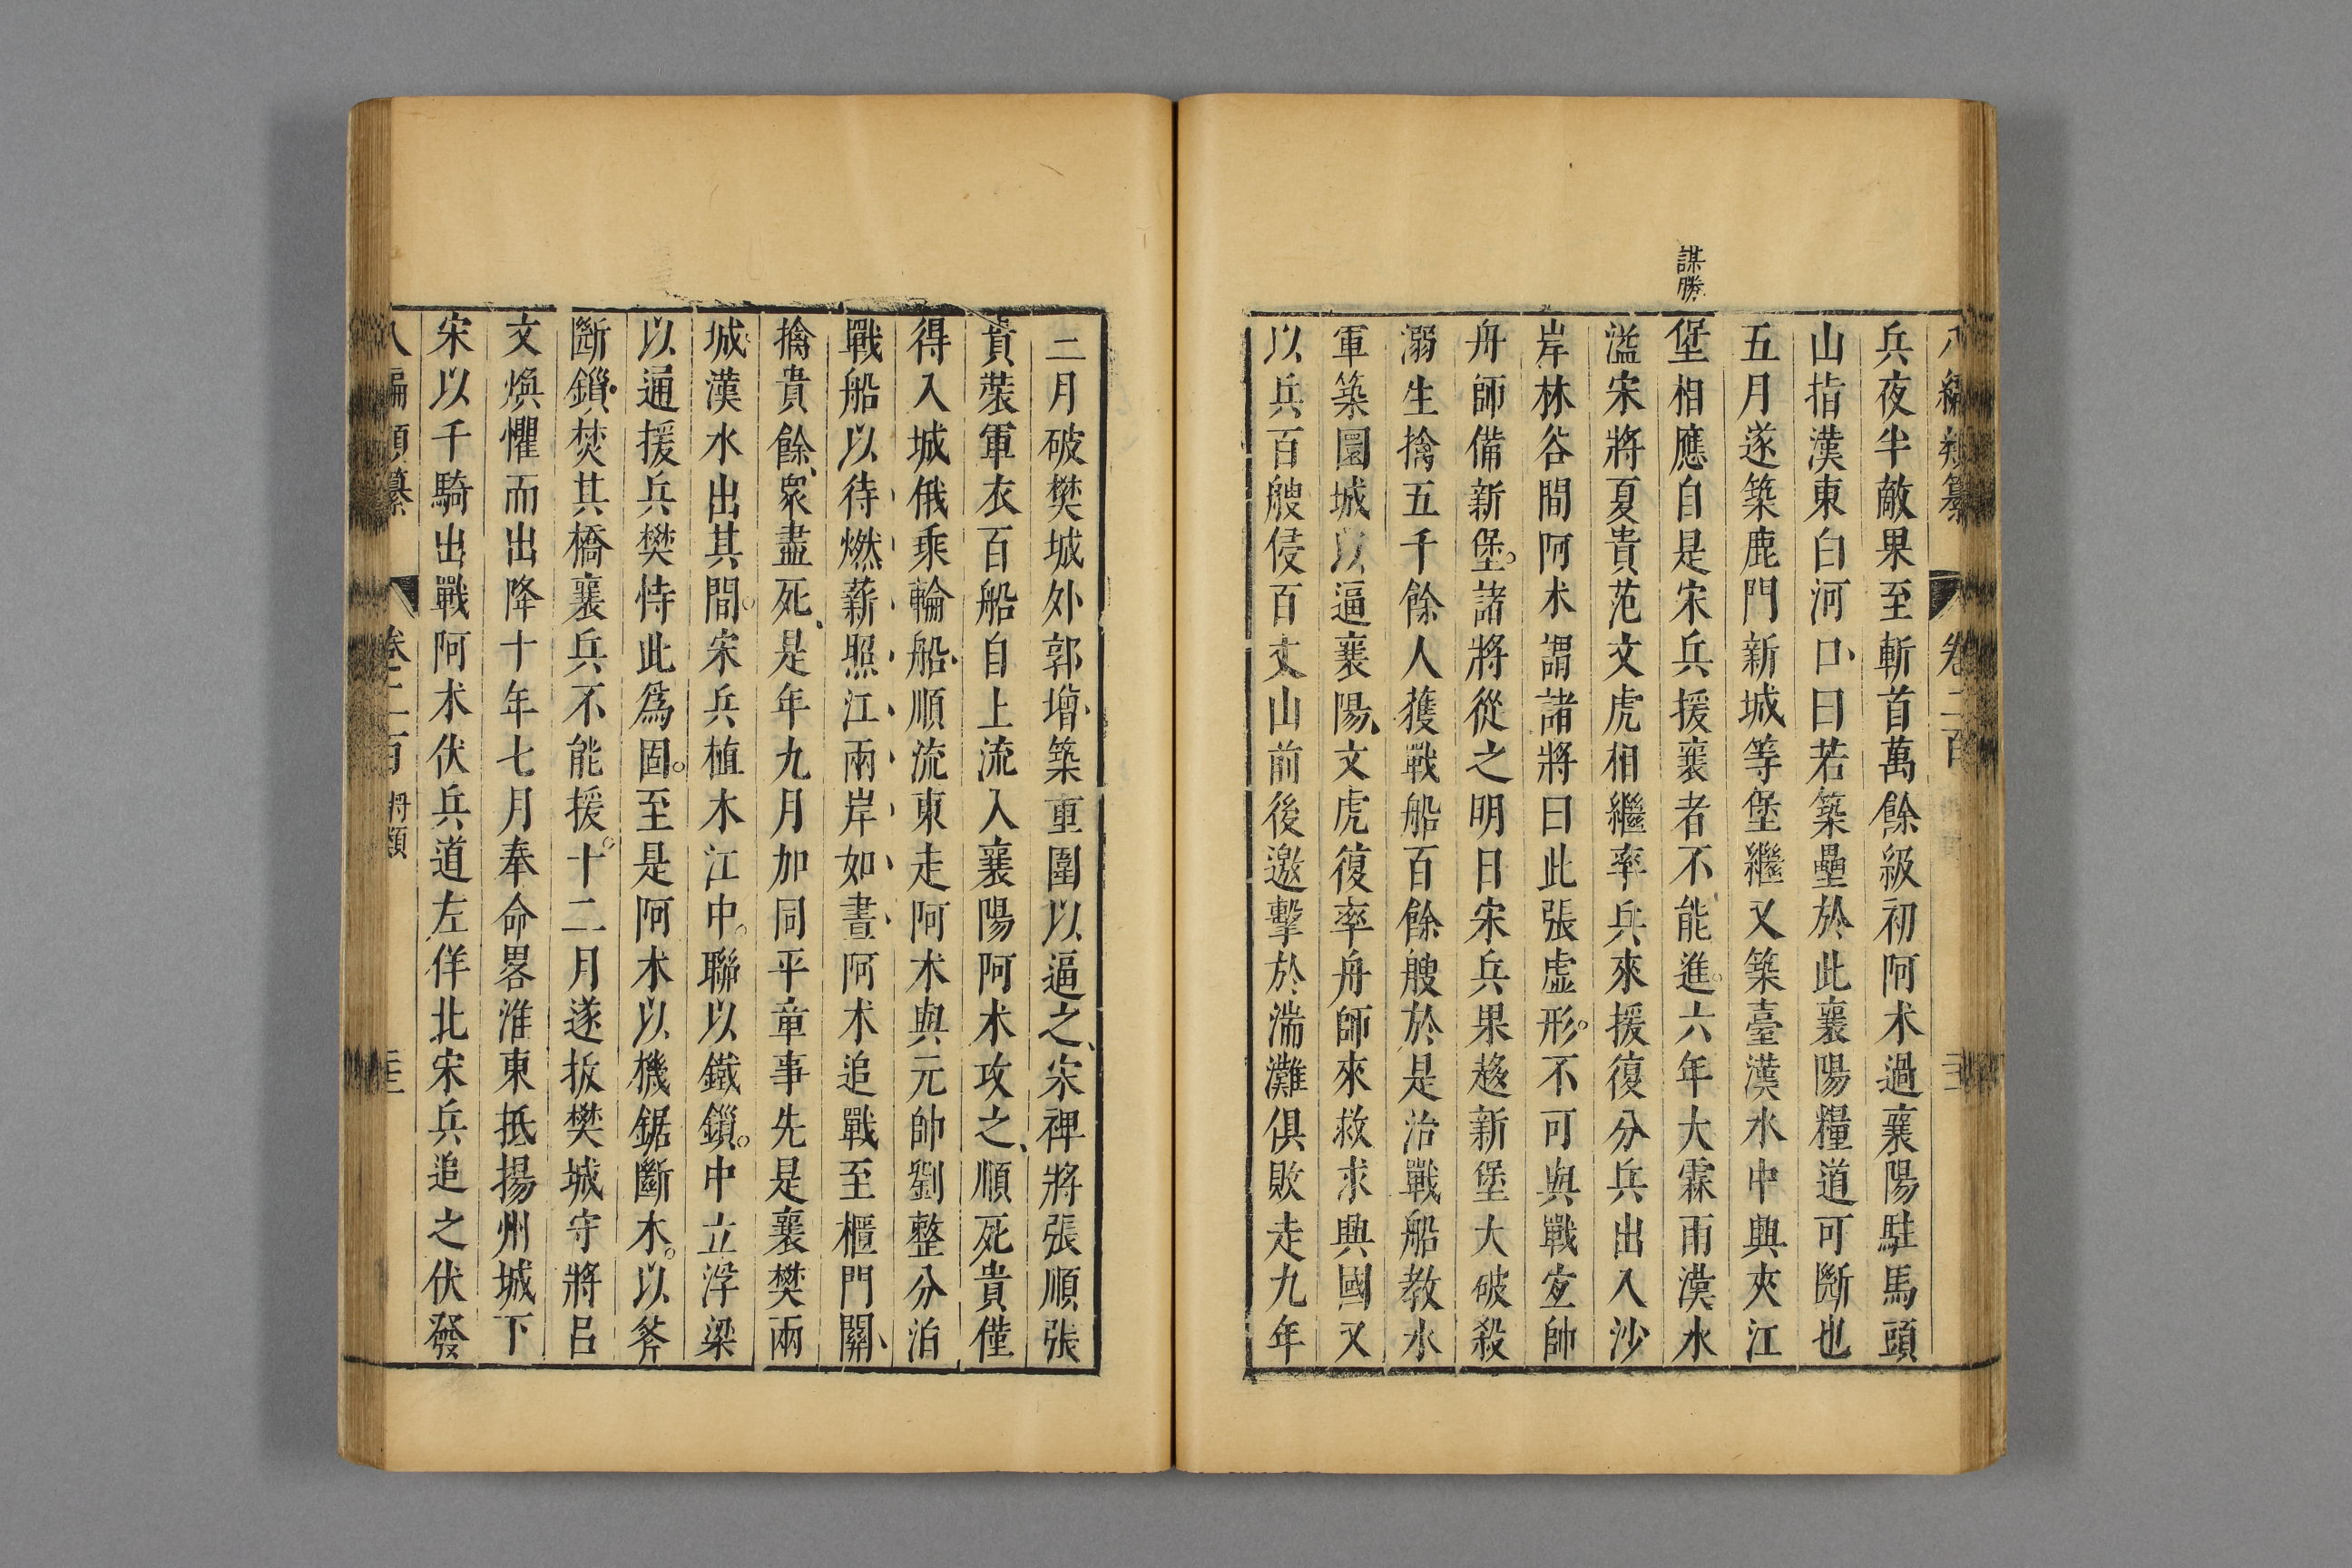 八編類纂 卷二百
兵夜半敵果至斬首萬餘級初阿术過襄陽駐馬頭
山指漢東白河口曰若築壘於此襄陽糧道可斷也
五月遂築鹿門新城等堡繼又築臺漢水中與夾江
謀勝
堡相應自是宋兵援襄者不能進六年大霖雨漢水
溢宋將夏貴范文虎相繼率兵來援復分兵出入沙
岸林谷間阿术謂諸將曰此張虛形不可與戰宜帥
舟師備新堡諸將從之明日宋兵果趨新堡大破殺
溺生擒五千餘人獲戰船百餘艘於是治戰船教水
軍築圜城以逼襄陽文虎復率舟師來救求興國又
以兵百艘侵百丈山前後邀擊於湍灘俱敗走九年
二月破樊城外郭增築重圍以逼之宋裨將張順張
貴裝軍衣百船自上流入襄陽阿术攻之順死貴僅
得入城俄乘輪船順流東走阿术與元帥劉整分泊
戰船以待燃薪照江兩岸如晝阿术追戰至櫃門關
擒貴餘眾盡死是年九月加同平章事先是襄樊兩
城漢水出其間宋兵植木江中聯以鐵鎖中立浮梁
以通援兵樊恃此爲固至是阿术以機鋸斷木以斧
斷鎖焚其橋襄兵不能援十二月遂拔樊城守將呂
文煥懼而出降十年七月奉命畧淮東抵揚州城下
宋以千騎出戰阿术伏兵道左佯北宋兵追之伏發
八編類纂 卷二百 將類